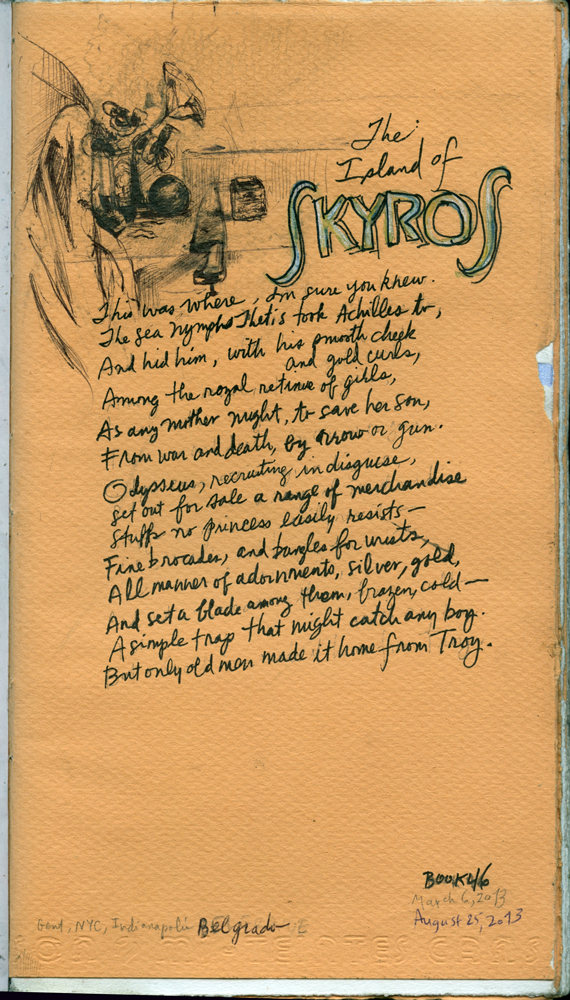 The:
Island of
SKYROS
This was where, I'm sure you knew.
The sea nymph Thetis took Achilles to,
And hid him, with his smooth cheek
and gold curls,
Among the royal retinue of girls,
As any mother might, to save her son,
From war and death, by arrow or gun.
Odysseus, recruiting in disguise,
Set out for sale a range of merchandise
Stuffs no princess easily resists—
Fine brocades, and bangles for wrists,
All manner of adornments, silver, gold,
And set a blade among them, brazen, cold—
A simple trap that might catch any boy.
But only old men made it home from Troy.
BOOK 46
March 6, 2013
August 25, 2013
Gent, NYC, Indianapolis Belgrade